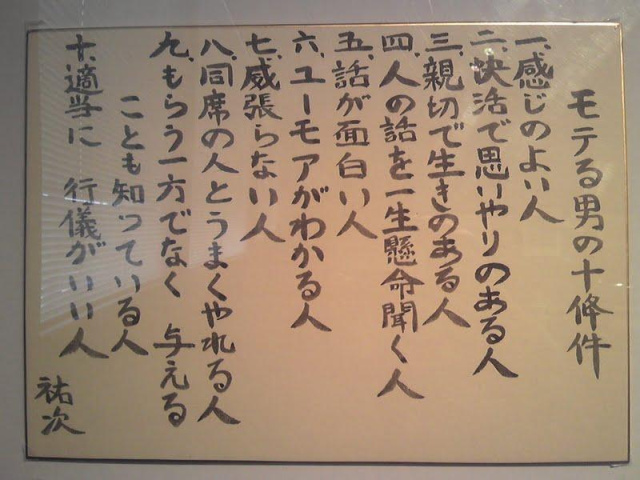 モテる男の十條件
一、感じのよい人
二、快活で思いやりのある人
三、親切で生きのある人
四、人の話を一生懸命聞く人
五、話が面白い人
六、ユーモアがわかる人
七、威張らない人
八、同席の人とうまくやれる人
九、もらう一方でなく 与える
ことも知っている人
十、適当に 行儀がいい人
祐次